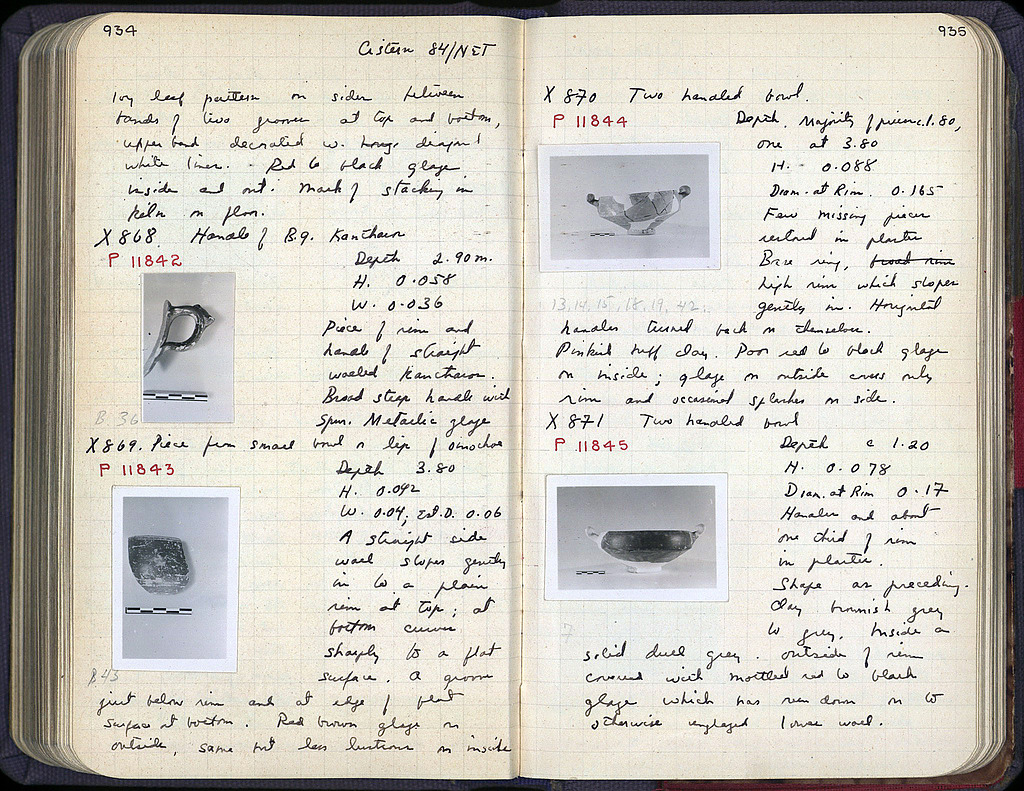 934
Cistern 84/NET
Ivy leaf pattern on sides between
bands of two grooves at top and bottom,
upper band decorated w. diagonal
white lines. Red to black glaze
inside and out. Mark of stacking in
kiln on floor.
X 868 Handle of B.g. Kantharos
P 11842
Depth 2.90 m.
H. 0.058
W. 0.036
Piece of rim and
handle of straight
walled Kantharos.
Broad strap handle with
spur. Metallic glaze
B 36
X 869. Piece from small bowl or lip of oinochoe
P 11843
Depth 3.80
H. 0.042
W. 0.04, Est. D. 0.06
A straight side
wall slopes gently
in to a plain
rim at top; at
bottom curves
sharply to a flat
surface. A groove
B 43
just below rim and at edge of flat
surface at bottom. Red brown glaze on
outside, same but less lustrous on inside
935
X 870 Two handled bowl.
P 11844
Depth. Majority of pieces c. 1.80,
one at 3.80
H. 0.088
Diam. at Rim. 0.165
Few missing pieces
restored in plaster
Base ring, broad rim
high rim which slopes
13, 14, 15, 18, 19, 42.
gently in. Horizontal
handles turned back on themselves.
Pinkish buff clay. Poor red to black glaze
on inside; glaze on outside covers only
rim and occasional splashes on side.
X 871 Two handled bowl
P 11845
Depth c 1.20
H. 0.078
Diam. at Rim 0.17
Handles and about
one third of rim
in plaster.
Shape as preceding.
Clay brownish grey
7
to grey. Inside a
solid dull grey. Outside of rim
covered with mottled red to black
glaze which has run down on to
otherwise unglazed lower wall.